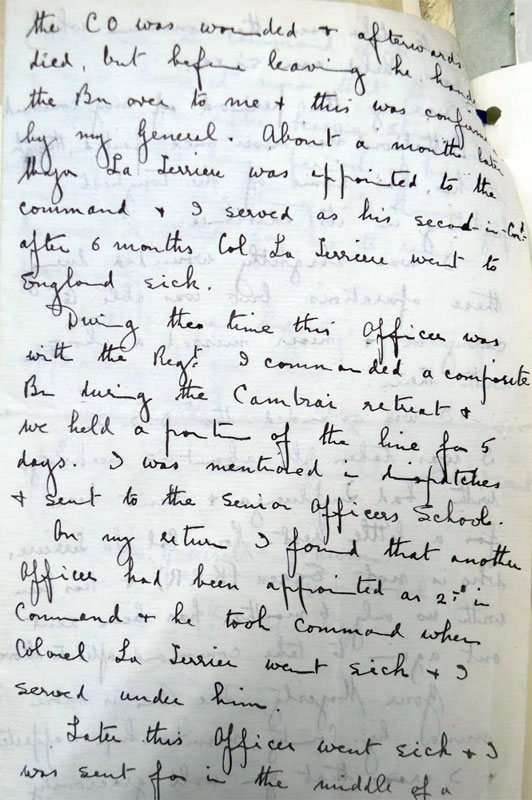 the CO was wounded & afterwards
died, but before leaving he hande
the Bn over to me & this was confirm
by my General. About a months later
Major La Terriere was appointed to the
command & I served as his second-in-Com:
after 6 months Col La Terriere went to
England sick.
During the time this Officer was
with the Regt. I commanded a composite
Bn during the Cambrai retreat &
we held a portion of the line for 5
days. I was mentioned in dispatches
& sent to the Senior Officers School.
On my return I found that another
Officer had been appointed as 2nd in
Command & he took command when
Colonel La Terriere went sick & I
served under him.
Later this Officer went sick & I
was sent for in the middle of a